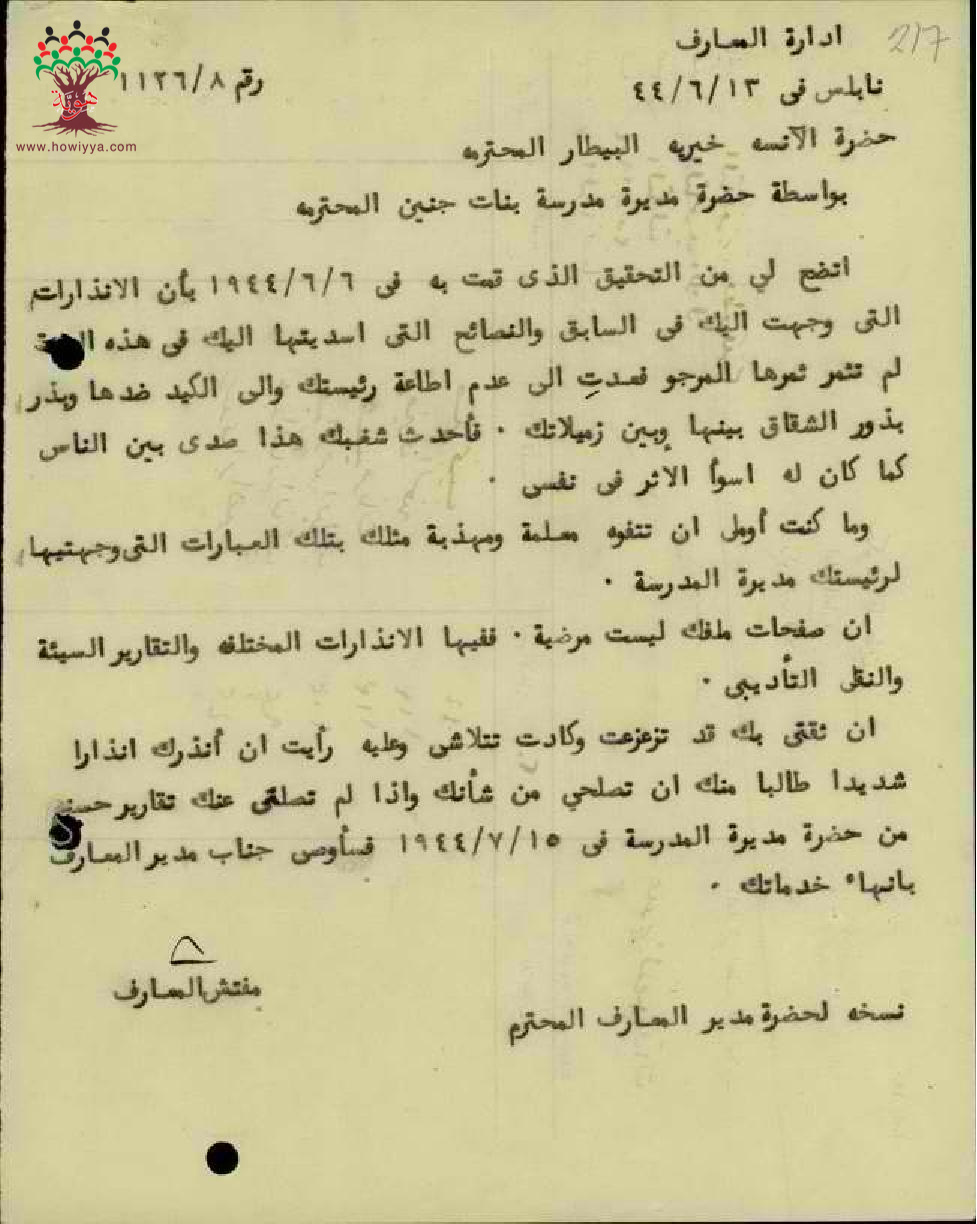 ادارة المعارف
217
نابلس فى ١٣/٦/٤٤
رقم ١١٢٦/٨
هوية
www.howiyya.com
حضرة الآنسه خيريه البيطار المحترمه
بواسطة حضرة مديرة مدرسة بنات جنين المحترمه
اتضح لي من التحقيق الذى قمت به فى ١٩٤٤/٦/٦ بأن الانذارات
التى وجهت اليك فى السابق والنصائح التى اسديتها اليك فى هذه
لم تثمر ثمرها المرجو فعمدتِ الى عدم اطاعة رئيستك والى الكيد ضدها وبذر
بذور الشقاق بينها وبين زميلاتك ٠ فأحدث شغبك هذا صدى بين الناس
كما كان له اسوأ الاثر فى نفسى ٠
وما كنت أومل ان تتفوه معلمة ومهذبة مثلك بتلك العبارات التى وجهتيها
لرئيستك مديرة المدرسة ٠
ان صفحات ملفك ليست مرضية ٠ ففيها الانذارات المختلفه والتقارير السيئة
والنقل التأديبى ٠
ان ثقتى بك قد تزعزعت وكادت تتلاشى وعليه رأيت ان أنذرك انذارا
شديدا طالبا منك ان تصلحي من شأنك واذا لم تصلنى عنك تقارير حسنه
من حضرة مديرة المدرسة فى ١٩٤٤/٧/١٥ فسأوصى جناب مدير المعارف
بانهاء خدماتك ٠
مفتش المعارف
نسخه لحضرة مدير المعارف المحترم